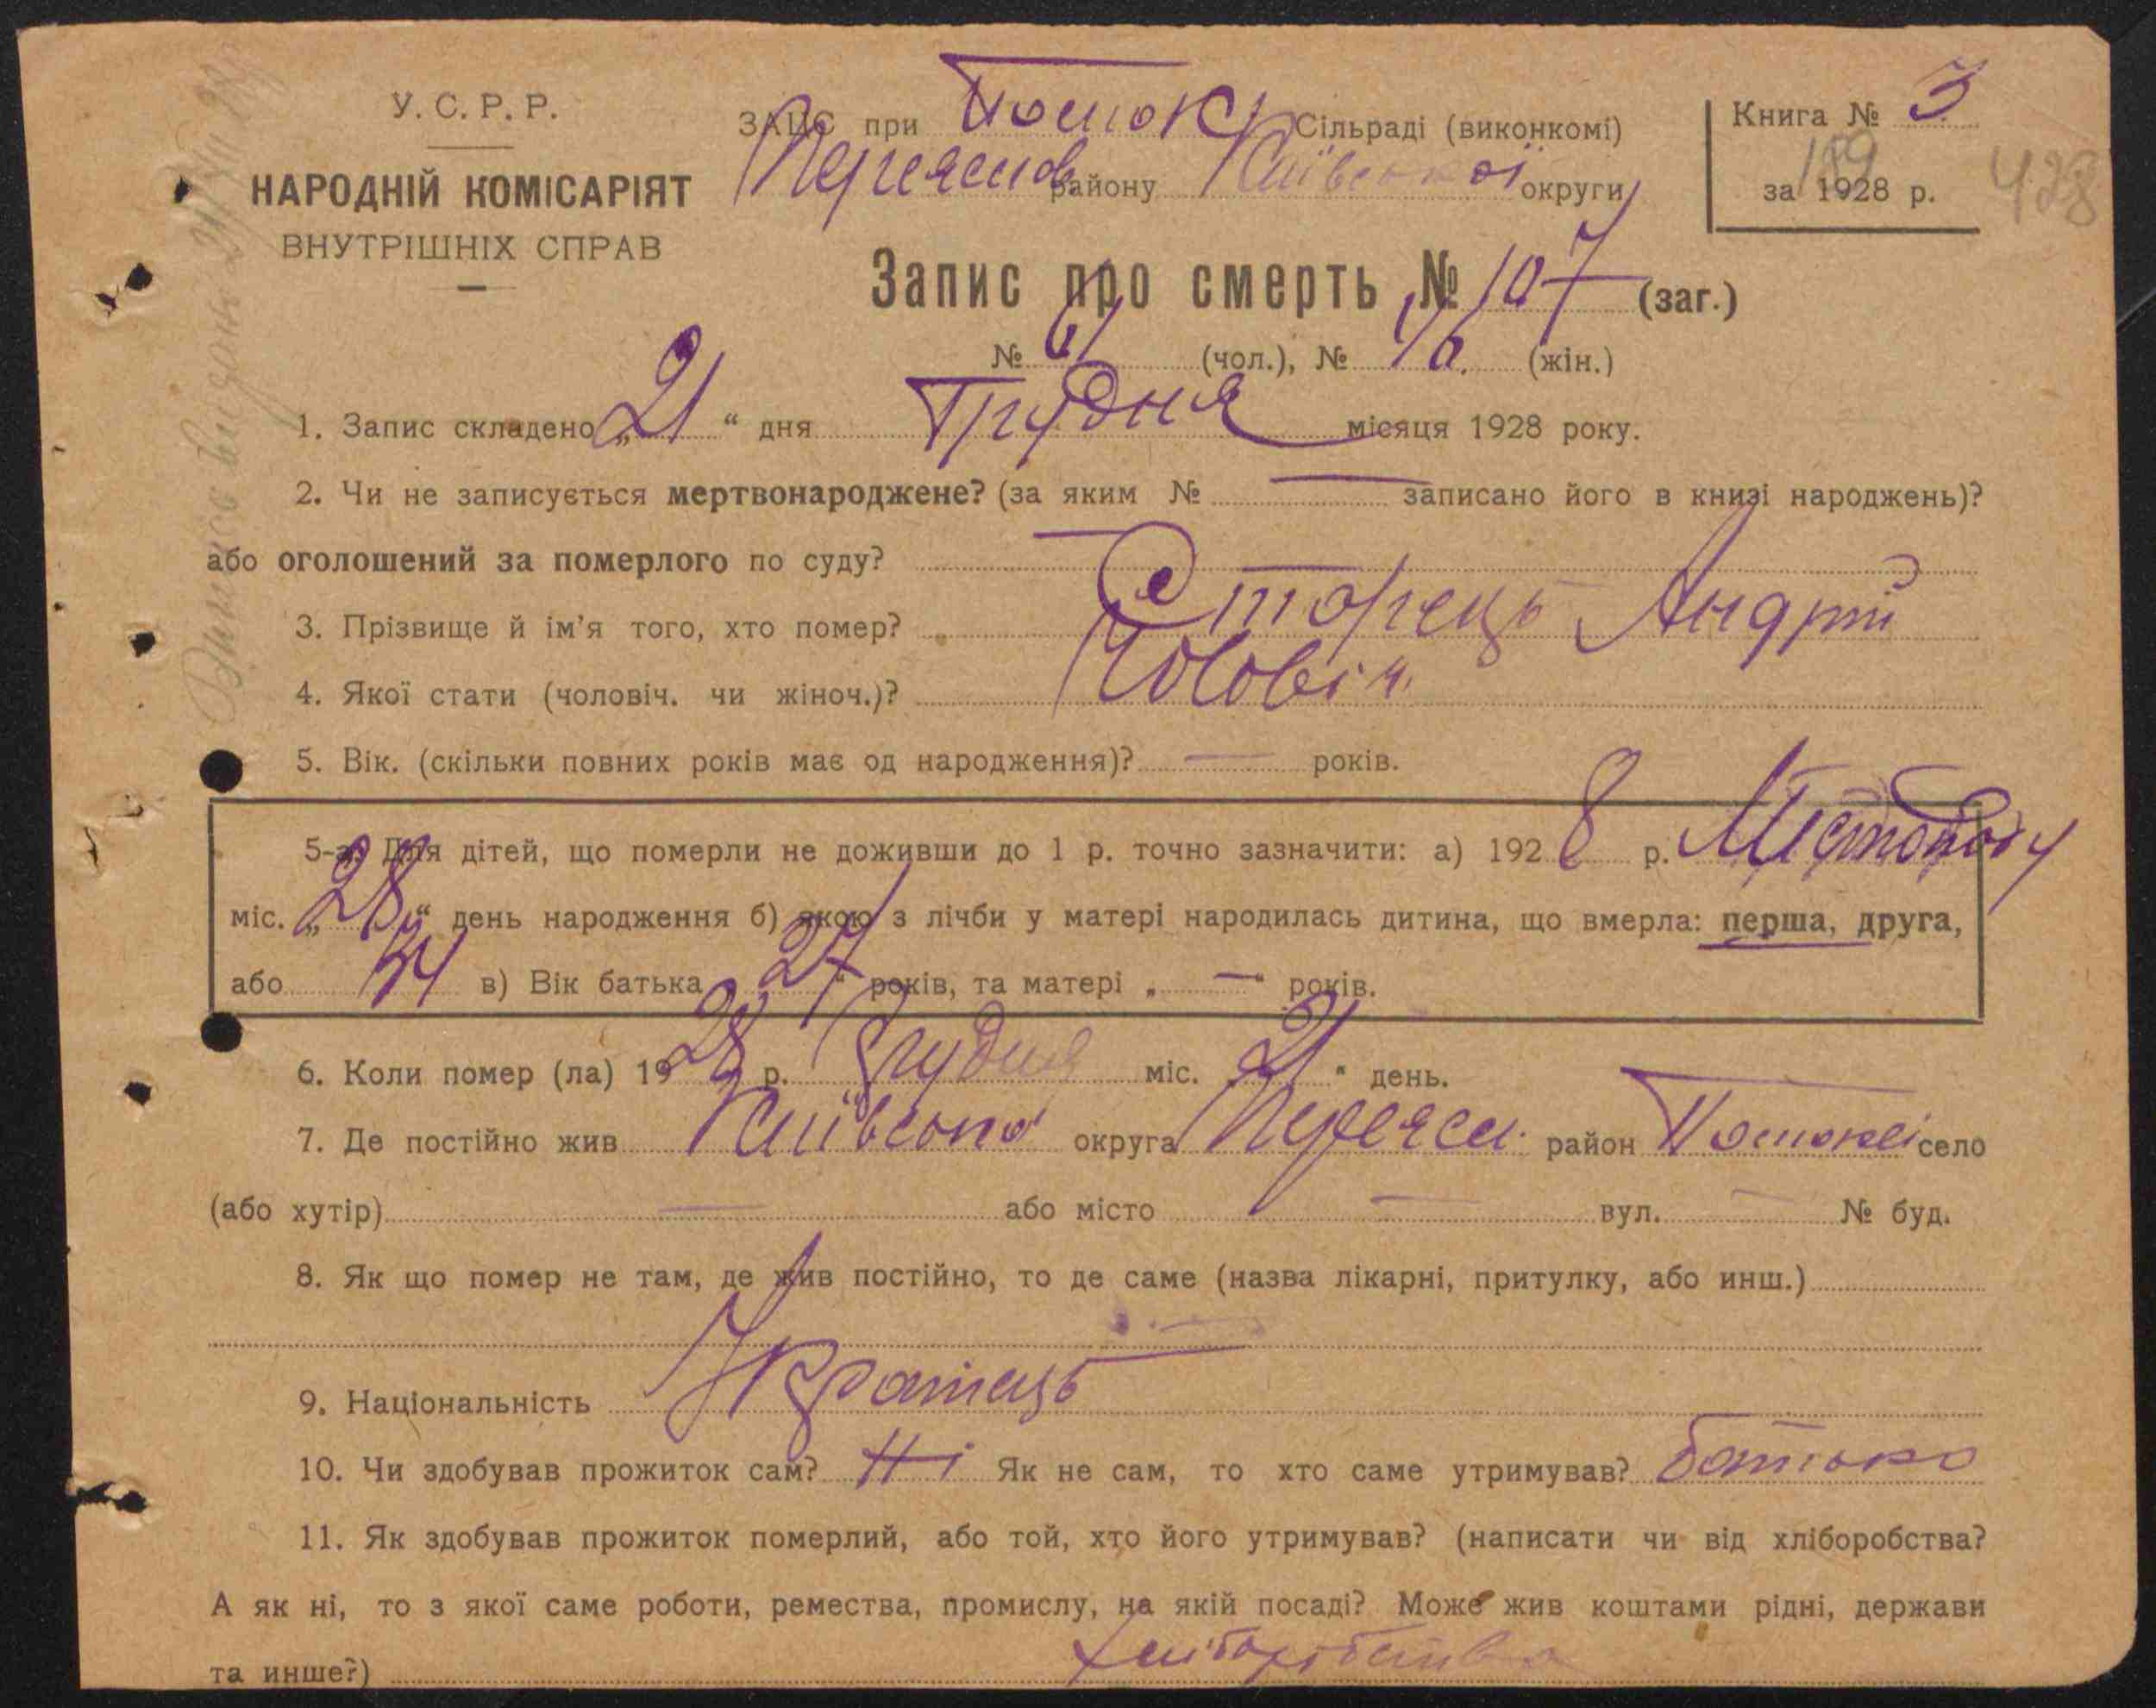 У. С. Р. Р.
НАРОДНІЙ КОМІСАРІЯТ
ВНУТРІШНІХ СПРАВ
ЗАЦС при Поток Сільраді (виконкомі)
Переяслов району Київської округи
Книга № 3
159
за 1928 р.
428
Запис про смерть № 107 (заг.)
№ 61 (чол.), № (жін.)
1. Запис складено „21“ дня Грудня місяця 1928 року.
2. Чи не записується мертвонароджене? (за яким № — записано його в книзі народжень)?
або оголошений за померлого по суду? —
3. Прізвище й ім'я того, хто помер? Сторець Андрій
4. Якої стати (чоловіч. чи жіноч.)? Чоловіч.
5. Вік. (скільки повних років має од народження)? — років.
5-а. Для дітей, що померли не доживши до 1 р. точно зазначити: а) 1928 р. Листопаду
міс. „28“ день народження б) якою з лічби у матері народилась дитина, що вмерла: перша, друга,
або в) Вік батька „27“ років, та матері „—“ років.
6. Коли помер (ла) 1928 р. Грудня міс. „21“ день.
7. Де постійно жив Київсько округа Переясл. район Потоки село
(або хутір) — або місто — вул. — № буд.
8. Як що помер не там, де жив постійно, то де саме (назва лікарні, притулку, або инш.)
—
9. Національність Українець
10. Чи здобував прожиток сам? Ні Як не сам, то хто саме утримував? батько
11. Як здобував прожиток померлий, або той, хто його утримував? (написати чи від хліборобства?
А як ні, то з якої саме роботи, ремества, промислу, на якій посаді? Може жив коштами рідні, держави
та инше?) хліборобства